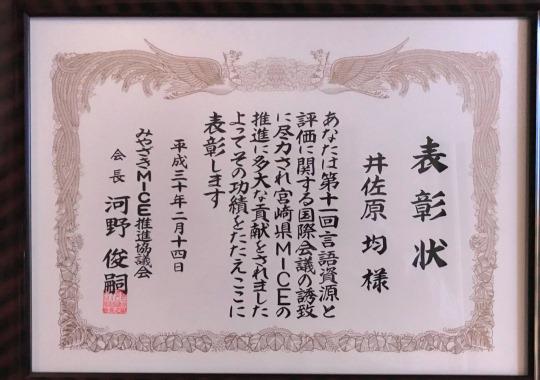 表彰状
井佐原 均 様
あなたは第十一回言語資源と
評価に関する国際会議の誘致
に尽力され宮崎県MICEの
推進に多大な貢献をされました
よってその功績をたたえここに
表彰します
平成三十年二月十四日
みやざきMICE推進協議会
会長 河野 俊嗣